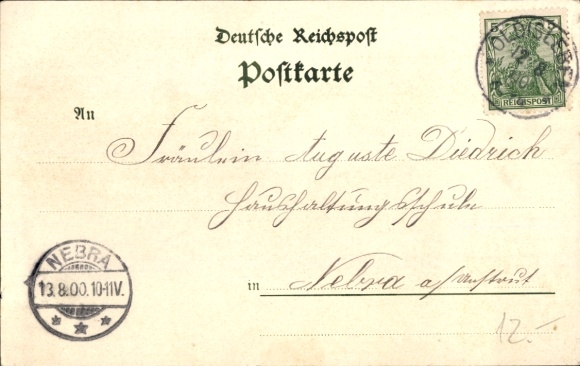 Deutsche Reichspost
Postkarte
5 5
OLDISLEBEN
12 8
REICHSPOST
An
Fräulein Auguste Diedrich
Haushaltungsschule
in Nebra a/Unstrut
NEBRA
13.8.00.10-11V.
12.-